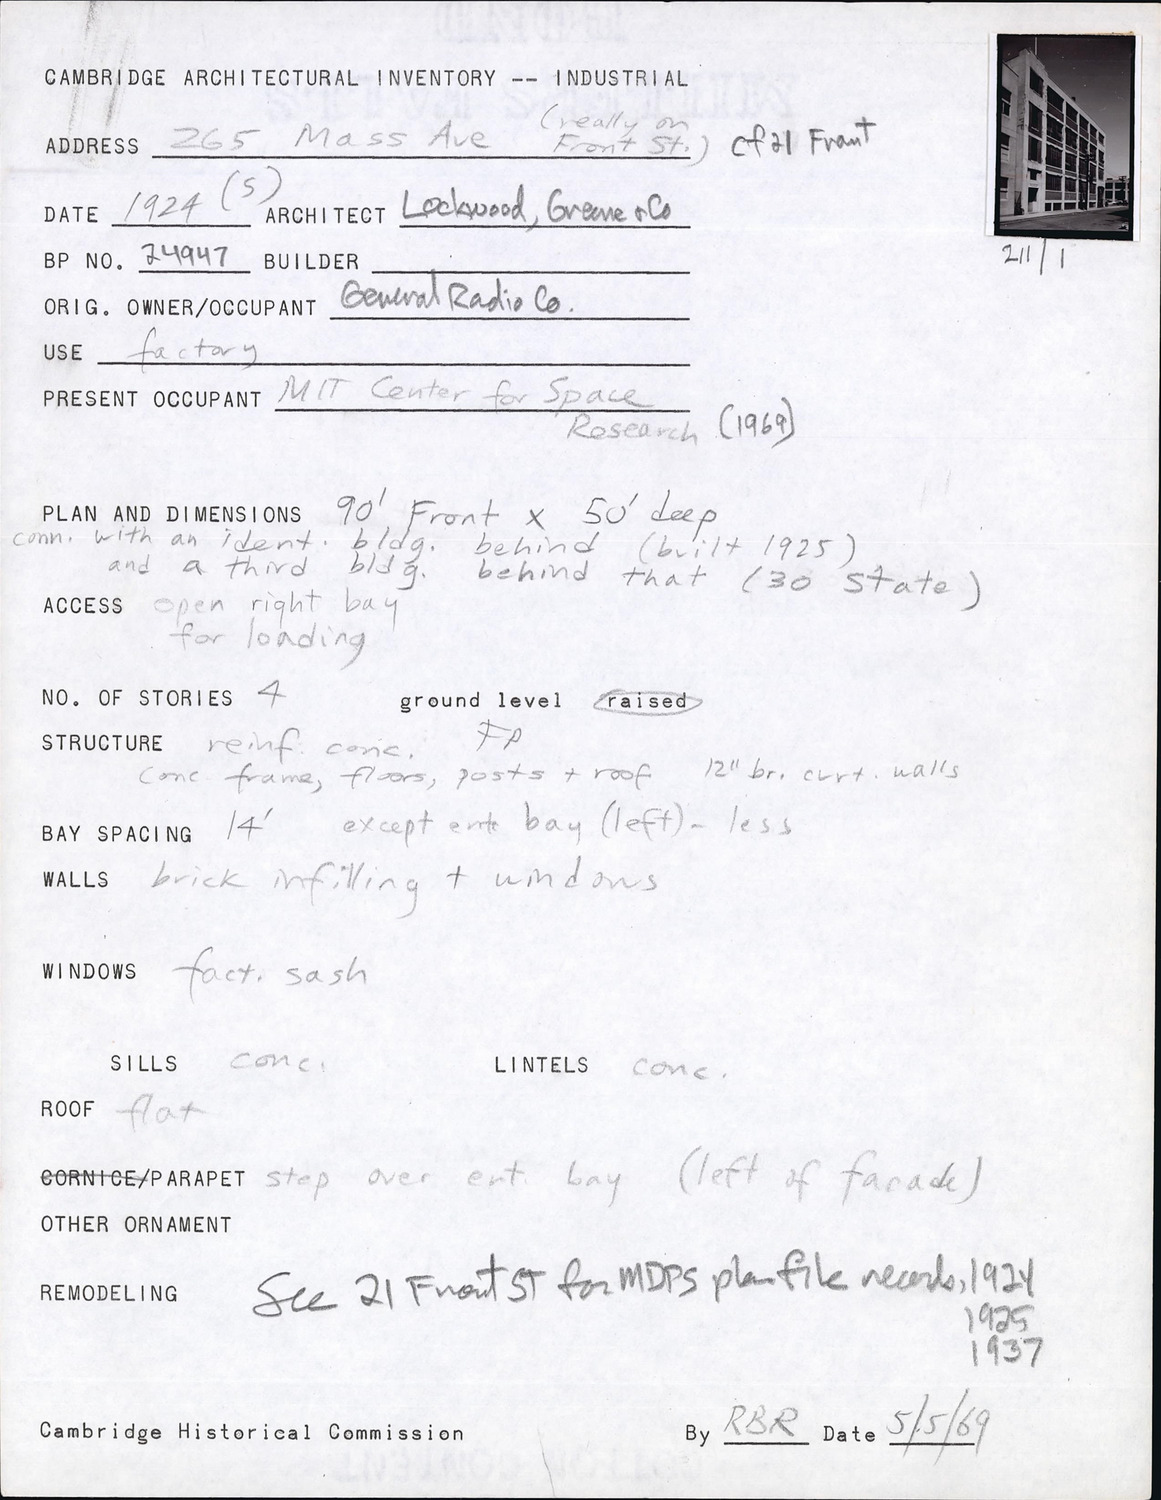 CAMBRIDGE ARCHITECTURAL INVENTORY -- INDUSTRIAL
ADDRESS 265 Mass Ave (really on Front St.) cf 21 Front
DATE 1924 (s) ARCHITECT Lockwood, Greene + Co
211/1
BP NO. 24947 BUILDER
ORIG. OWNER/OCCUPANT General Radio Co.
USE factory
PRESENT OCCUPANT MIT Center for Space
Research (1969)
PLAN AND DIMENSIONS 90' Front x 50' deep
conn. with an ident. bldg. behind (built 1925)
and a third bldg. behind that (30 State)
ACCESS open right bay
for loading
NO. OF STORIES 4 ground level raised
STRUCTURE reinf. conc. FP
conc frame, floors, posts + roof 12" br. curt. walls
BAY SPACING 14' except ent. bay (left) - less
WALLS brick infilling + windows
WINDOWS fact. sash
SILLS conc. LINTELS conc.
ROOF flat
CORNICE/PARAPET step over ent. bay (left of facade)
OTHER ORNAMENT
REMODELING See 21 Front ST for MDPS plan file records, 1924
1925
1937
Cambridge Historical Commission By RBR Date 5/5/69